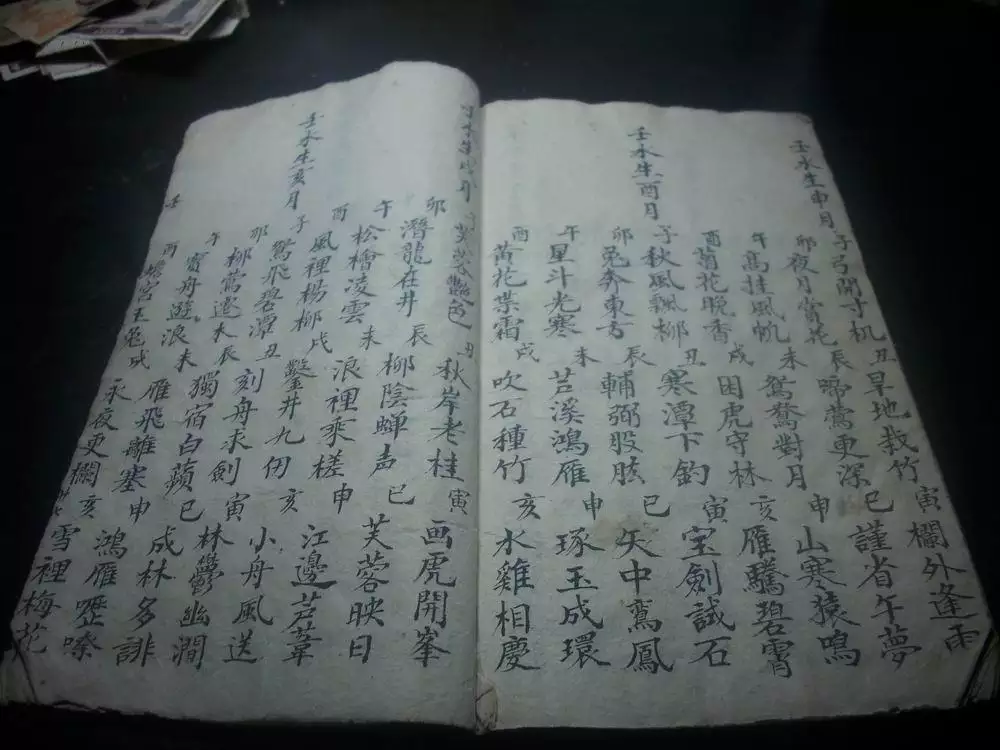 壬水生申月
子弓開寸机 丑旱地栽竹 寅欄外逢雨
卯夜月賞花 辰啼鶯更深 巳謹省午夢
午高挂風帆 未鴛鴦對月 申山寒猿鳴
酉菊花晚香 戌困虎守林 亥雁騰碧霄
壬水生酉月
子秋風飄柳 丑寒潭下釣 寅宝劍試石
卯兔奔東方 辰輔弼股肱 巳矢中鸞鳳
午星斗光寒 未芦溪鴻雁 申琢玉成環
酉黃花葉霜 戌吹石種竹 亥水雞相慶
壬水生戌月
芙蓉艷色 丑秋岸老桂 寅画虎開峯
卯潛龍在井 辰柳陰蝉声 巳芙蓉映日
午松檜凌雲 未浪裡乘槎 申江邊芦葦
酉風裡楊柳 戌鑿井九仞 亥小舟風送
壬水生亥月
子鴛飛碧潭 丑刻舟求劍 寅林鬱幽澗
卯柳鶯遷木 辰獨宿白蘋 巳成林多誹
午賓舟遊浪 未雁飛離塞 申鴻雁嚦嗦
酉蟾宮玉兔 戌永夜更欄 亥雪裡梅花
壬